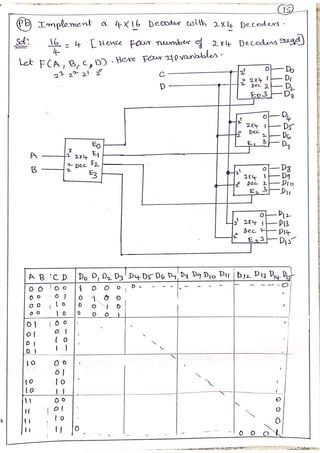 (15)
(Pb) Implement a 4x16 Decoder with 2x4 Decoders.
Sol: 16/4 = 4 [Hence four number of 2x4 Decoders reqd]
Let F(A, B, C, D). Here four I/P variables.
2³ 2² 2¹ 2⁰
C
D
2¹ 2x4 Dec 2⁰ E0 0 1 2 3 D0 D1 D2 D3
2¹ 2x4 Dec 2⁰ E1 0 1 2 3 D4 D5 D6 D7
A
B
2¹ 2x4 2⁰ Dec E0 E1 E2 E3
2¹ 2x4 Dec 2⁰ E2 0 1 2 3 D8 D9 D10 D11
2¹ 2x4 Dec 2⁰ E3 0 1 2 3 D12 D13 D14 D15
A B C D D0 D1 D2 D3 D4 D5 D6 D7 D8 D9 D10 D11 D12 D13 D14 D15
0 0 0 0 1 0 0 0 0 0
0 0 0 1 0 1 0 0
0 0 1 0 0 0 1 0
0 0 1 0 0 0 0 1
0 1 0 0
0 1 0 1
0 1 1 0
0 1 1 1
1 0 0 0
0 1
1 0 1 0
1 0 1 1
1 1 0 0 0
1 1 0 1 0
1 1 1 0 0
1 1 1 1 0 0 0 0 1